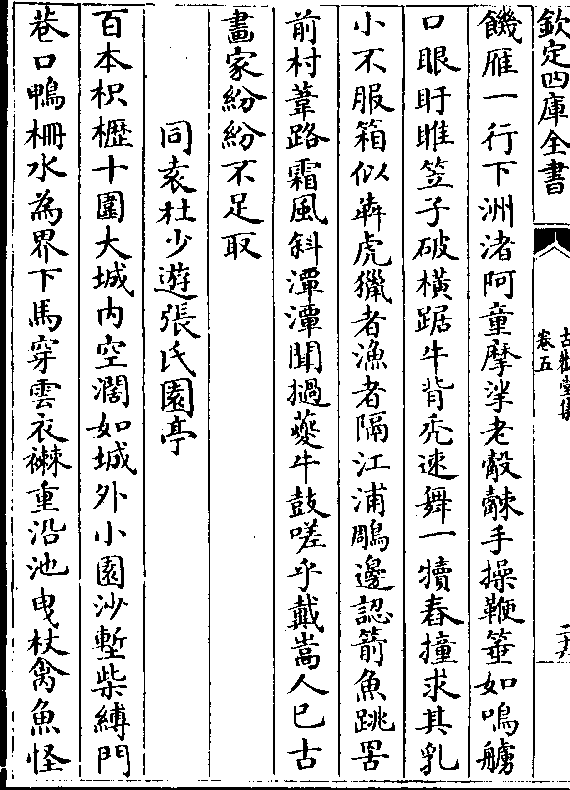 欽定四庫全書
古歡堂集
卷五
饑雁一行下洲渚阿童摩挲老觳觫手操鞭箠如鳴艣
口眼盱睢笠子破橫踞牛背禿速舞一犢舂撞求其乳
小不服箱似犇虎獵者漁者隔江浦鵰邊認箭魚跳罟
前村葦路霜風斜潭潭聞撾夔牛鼓嗟乎戴嵩人已古
畫家紛紛不足取
同袁杜少遊張氏園亭
百本枳櫪十圍大城内空濶如城外小園沙塹柴縛門
巷口鴨柵水為界下馬穿雲衣襋重沿池曳杖禽魚怪